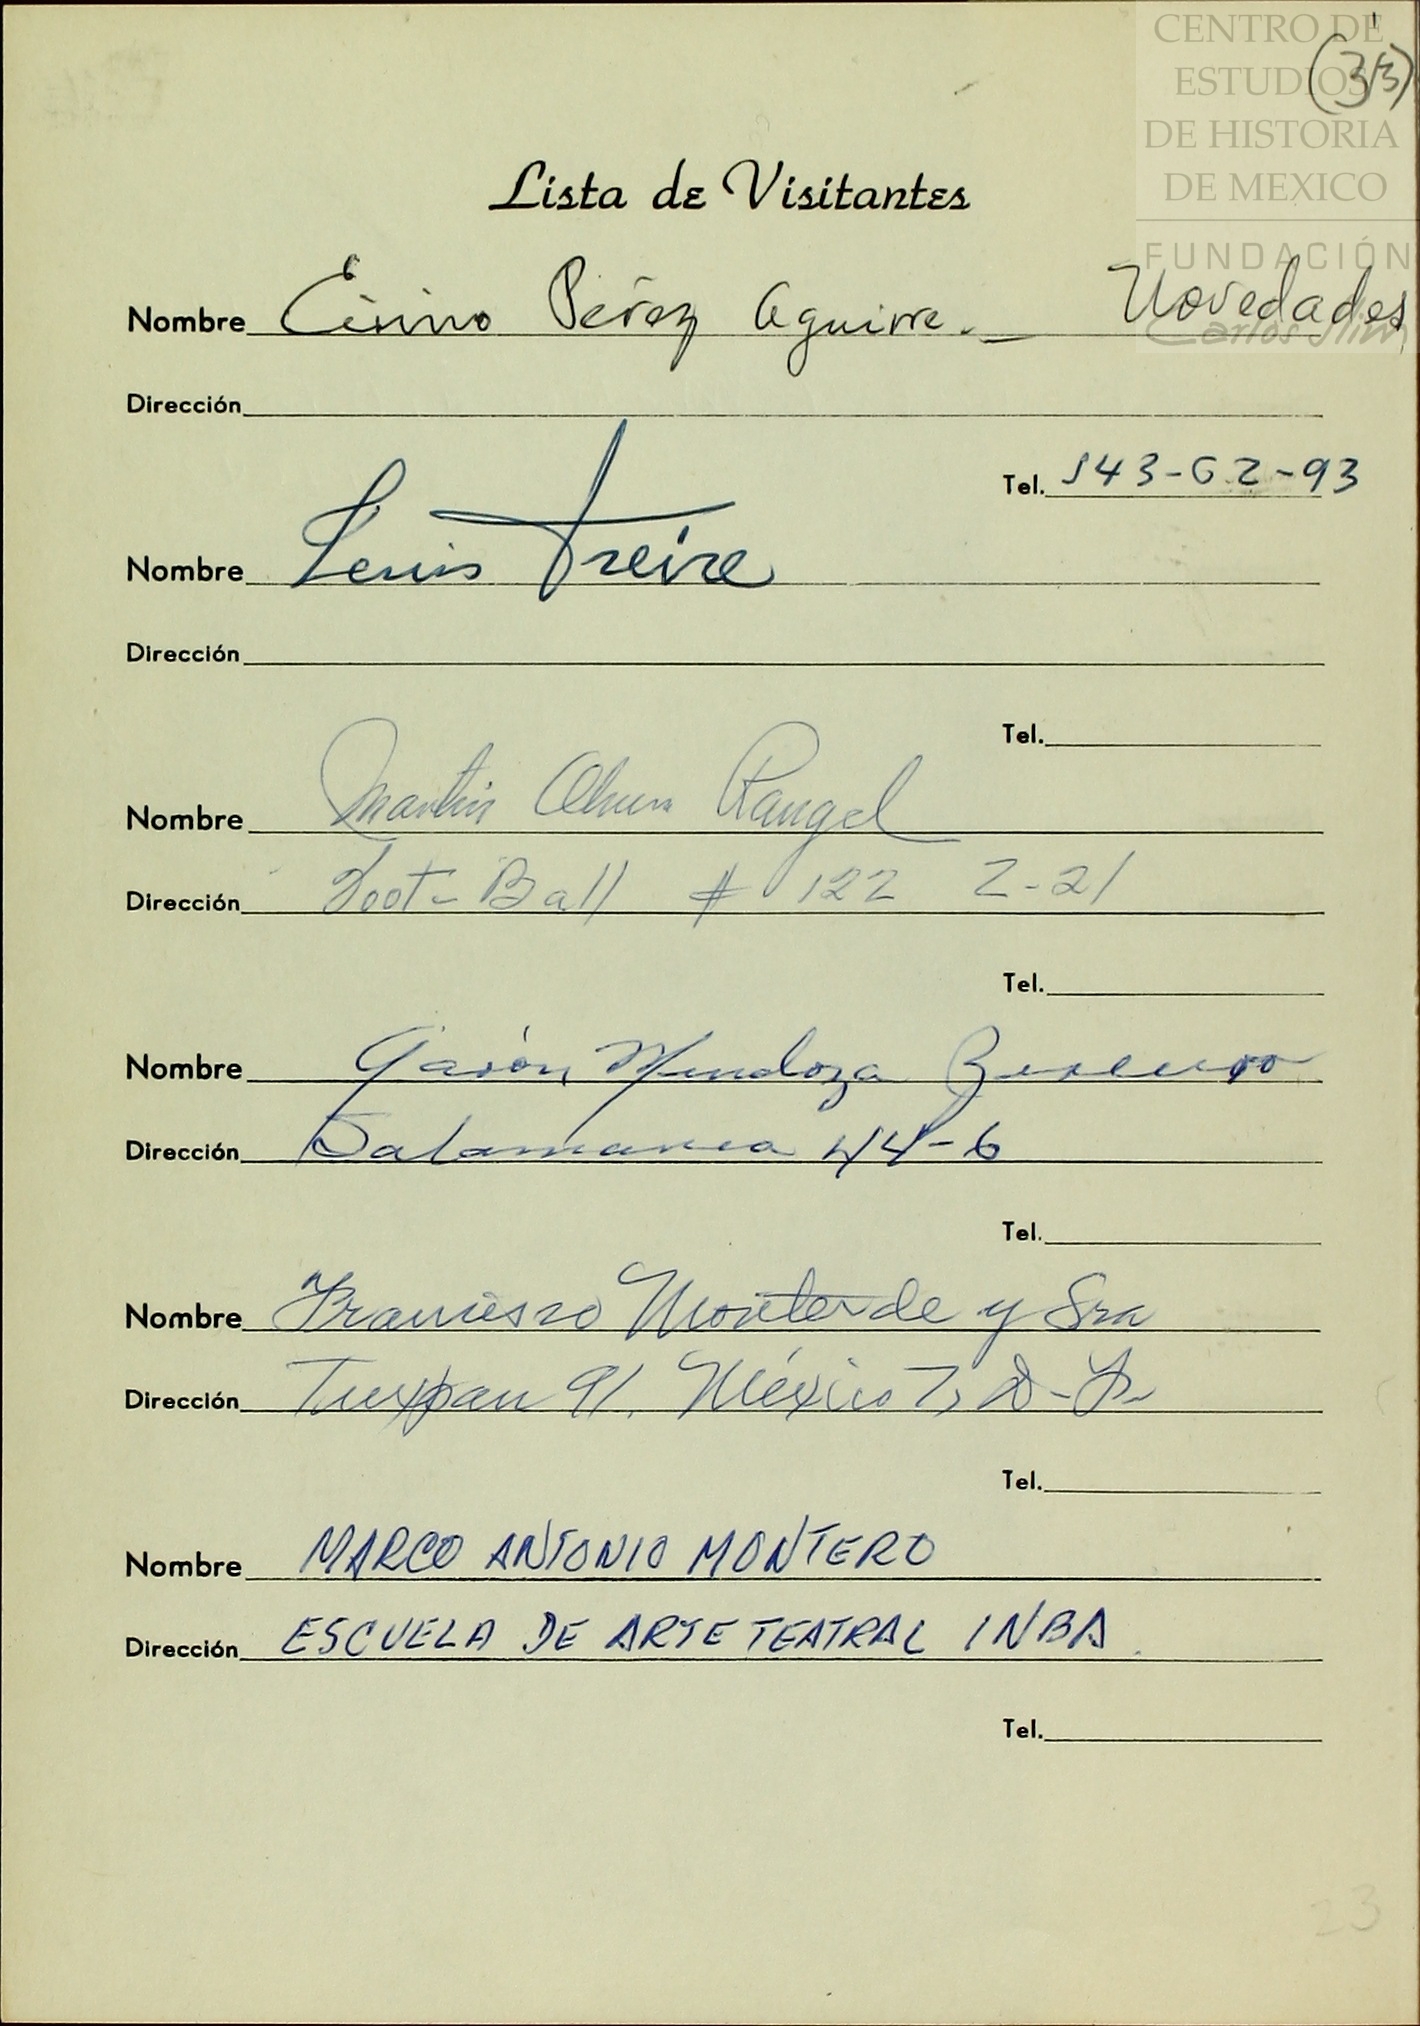 CENTRO DE
ESTUDIOS
DE HISTORIA
DE MEXICO
FUNDACIÓN
Carlos Slim
Lista de Visitantes
Nombre Pérez Aguirre. Novedades
Dirección
Tel. 543-62-93
Nombre Freire
Dirección
Tel.
Nombre Martin Rangel
Dirección Foot-Ball # 122 Z-21
Tel.
Nombre Mendoza
Dirección Salamanca 44-6
Tel.
Nombre Francisco Monterde y Sra
Dirección Tuxpan 91. México 7, D-F.
Tel.
Nombre MARCO ANTONIO MONTERO
Dirección ESCUELA DE ARTE TEATRAL INBA.
Tel.
23